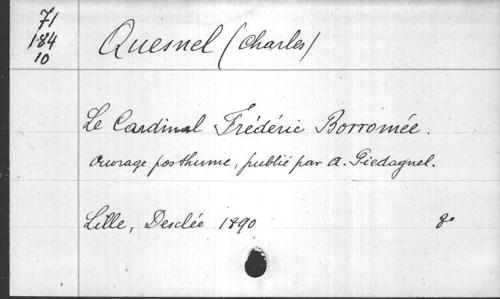 71
184
10
Quesnel (Charles)
Le Cardinal Frédéric Borromée.
Ouvrage posthume, publié par A. Piedagnel.
Lille, Desclée 1890 8°